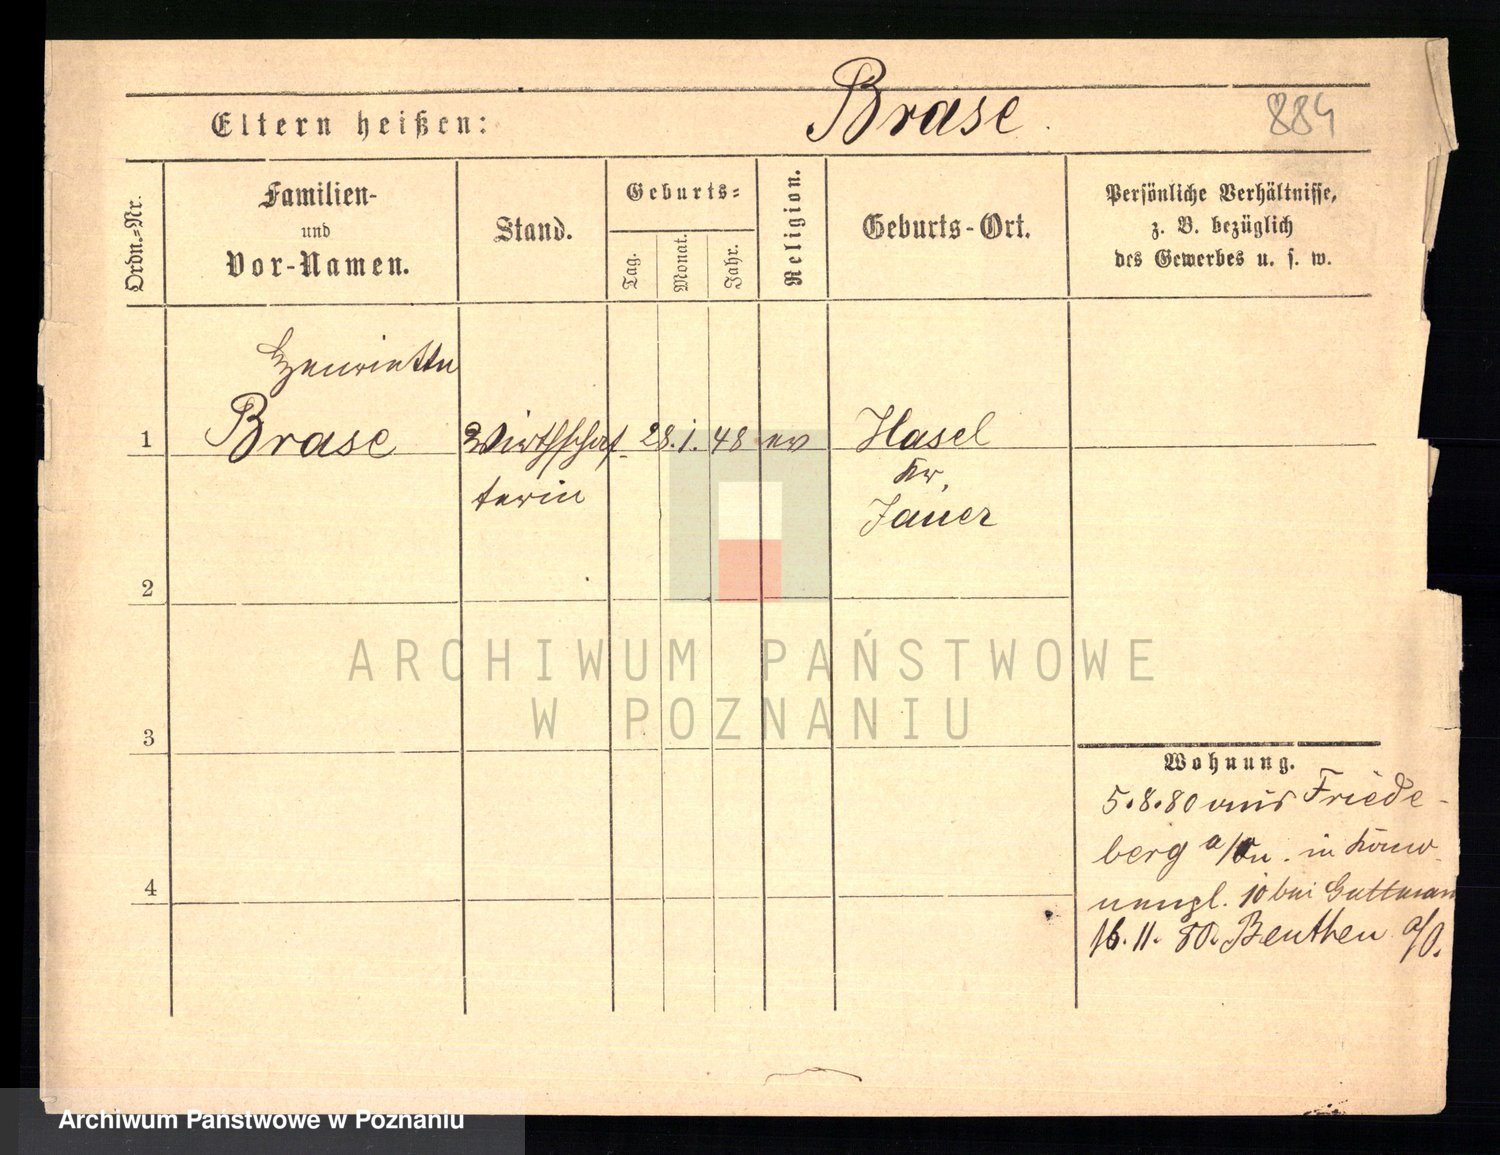 Brase.
884
Eltern heißen:
Ordn.-Nr.
Familien-
und
Vor-Namen.
Stand.
Geburts-
Tag.
Monat.
Jahr.
Religion.
Geburts-Ort.
Persönliche Verhältnisse,
z. B. bezüglich
des Gewerbes u. s. w.
Henriette
1 Brase Wirthschaf- 28. 1. 48 ev Hasel
terin
Kr.
Jauer
2
3
4
Wohnung.
5.8.80 aus Friede-
berg a/ in
10 bei Guttman
16. 11. 80. Beuthen a/O.
ARCHIWUM PAŃSTWOWE
W POZNANIU
Archiwum Państwowe w Poznaniu